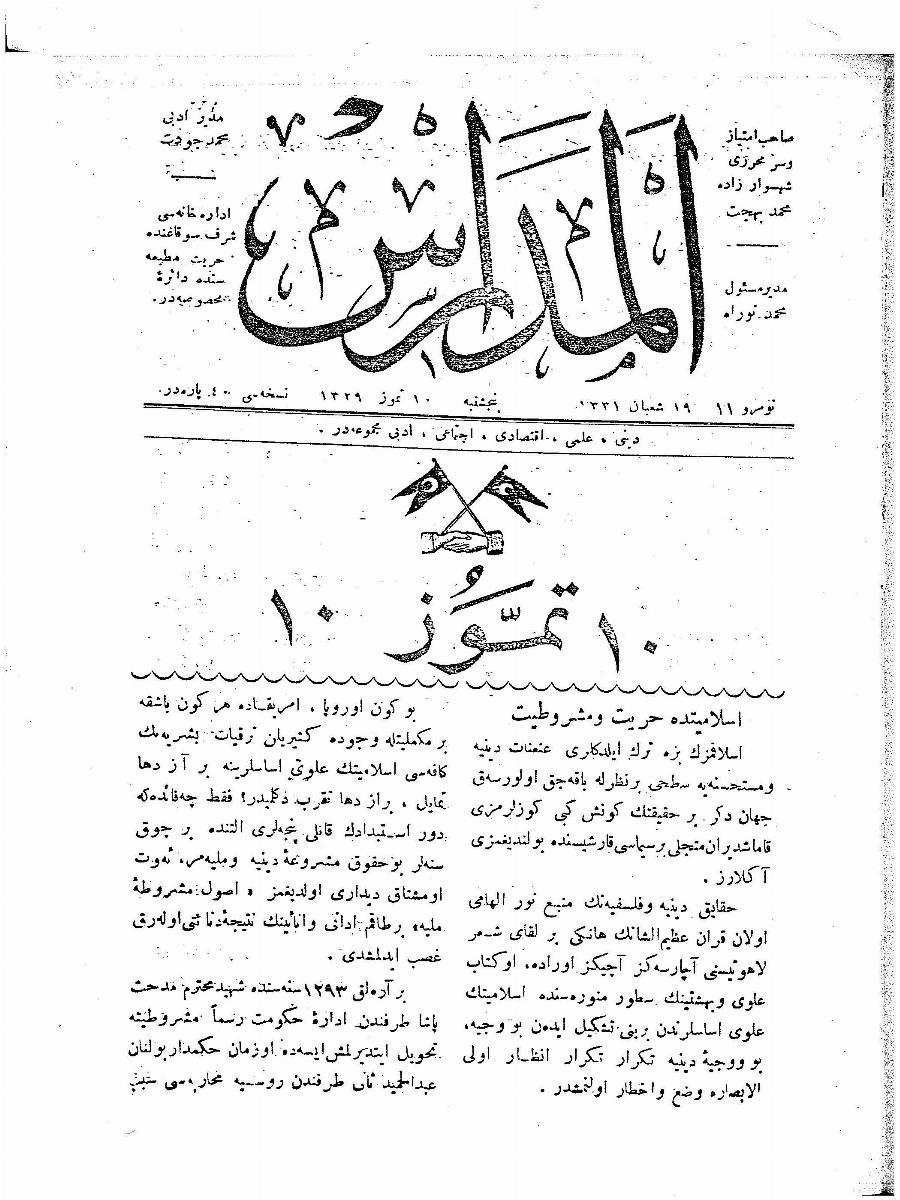 صاحب امتیاز
وسر محرری
شهسوار زاده
محمد بهجت
مدیر مسئول
محمد نوراه
المدارس
مدیر ادبی
محمد جودت
اداره خانه‌سی
شرف سوقاغنده
حریت مطبعه
سنده دائرهٔ
مخصوصه‌در.
نومرو ۱۱ ۱۹ شعبان ۱۳۳۱ پنجشنبه ۱۰ تموز ۱۳۲۹ نسخه‌سی ۴۰ پاره‌در.
دینی ، علمی ، اقتصادی ، اجتماعی ، ادبی مجموعه‌در .
۱۰ تموز ۱۰
اسلامیتده حریت ومشروطیت
اسلافمزك بزه ترك ایلدكاری عنعنات دینیه
ومستحسنه‌یه سطحی بر نظرله باقه‌جق اولورسه‌ق
جهان دكر بر حقیقتك كونش كبی كوزلرمزی
قاماشدیران متجلی بر سیاسی قارشیسنده بولندیغمزی
آكلارز .
حقایق دینیه وفلسفیه‌نك منبع نور الهامی
اولان قرآن عظیم‌الشانك هانكی بر لقای شعر
لاهوتیسنی آچارسه‌كز آچیكز اوراده، اوكتاب
علوی وبهشتینك سطور منوره‌سنده اسلامیتك
علوی اساسلرندن برینی تشكیل ایدن بو وجیه،
بو ووجیبهٔ دینیه تكرار تكرار انظار اولی
الابصاره وضع واخطار اولنمشدر .
بو كون اوروپا ، امریقاده هر كون باشقه
بر مكملیتله وجوده كتیریلن ترقیات بشریه‌نك
كافه‌سی اسلامیتك علوی اساسلرینه بر آز دها
تمایل ، بر از دها تقرب دكلمیدر؟ فقط چه‌فائده‌كه
دور استبدادك قانلی پنجه‌لری التنده بر چوق
سنه‌لر بو حقوق مشروعهٔ دینیه وملیه‌مز، ئه‌وت
او مشتاق دیداری اولدیغمز « اصول مشروطهٔ
ملیه» بر طاقم ادانی وانانیتك نتیجهٔ دنائتی اوله‌رق
غصب ایدلمشدی .
بر آره‌لق ۱۲۹۳ سنه‌سنده شهید محترم مدحت
پاشا طرفندن ادارهٔ حكومت رسماً مشروطیته
تحویل ایتدیرلمش ایسه‌ده اوزمان حكمدار بولنان
عبدالحمید ثانی طرفندن روسیه محاربه‌سی